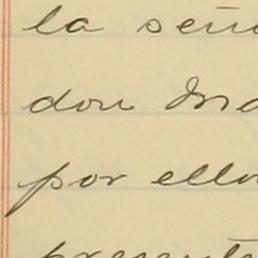 la señ
don
por ello
present